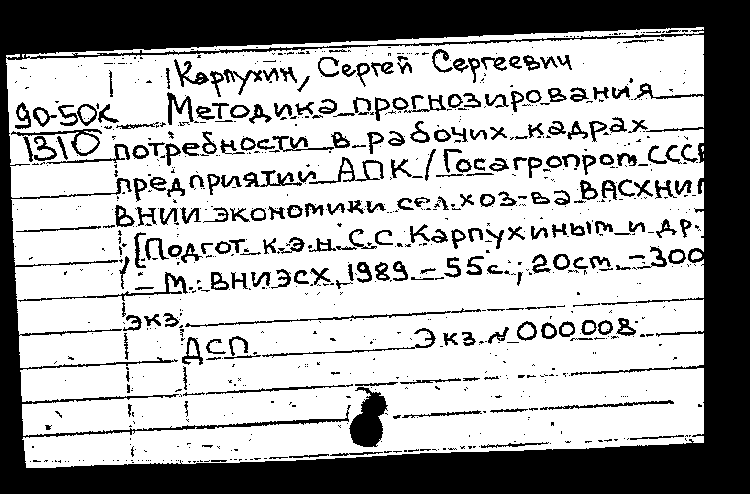 Карпухин, Сергей Сергеевич
90-50к Методика прогнозирования
1310 потребности в рабочих кадрах
предприятий АПК / Госагропром СССР
ВНИИ экономики сел. хоз-ва ВАСХНИЛ
; [Подгот. к.э.н. С.С. Карпухиным и др.
– М.: ВНИЭСХ, 1989. – 55с.; 20см. – 300
экз.
ДСП. Экз. N 000008